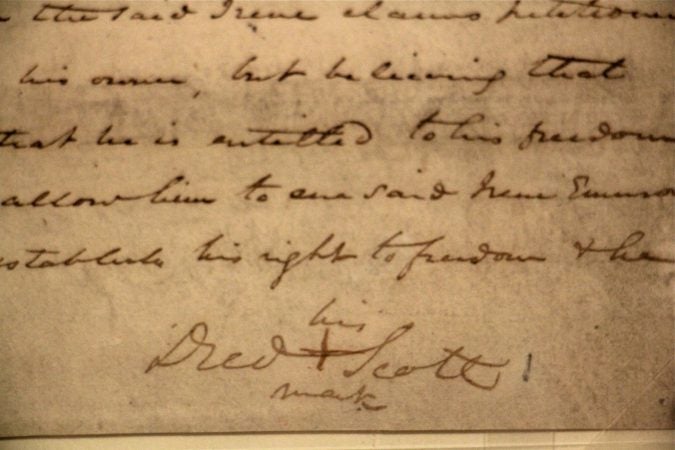 the said Irene claims petitioner
his owner, but believing that
that he is entitled to his freedom
allow him to sue said Irene Emerson
establish his right to freedom & he
his
Dred + Scott
mark